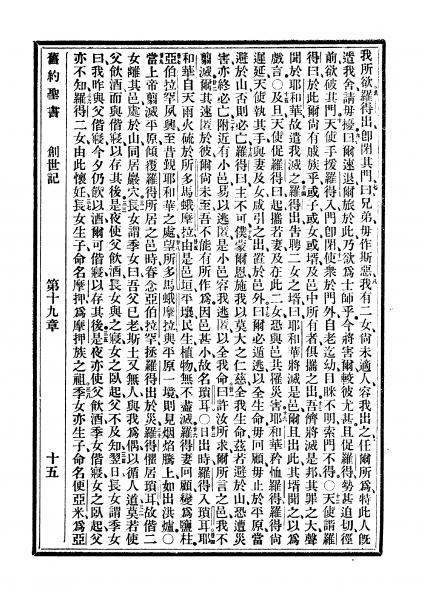 我所欲、羅得出、卽閉其門、曰、兄弟毋作斯惡、我有二女、尚未適人、容我出之、任爾所爲、特此人旣
遵我舍、請毋擾、曰、爾速退、爾旅於此、乃欲爲士師乎、今將害爾、較彼尤甚、且促羅得、勢甚迫切、徑
前欲破其門、天使手援羅得入、門卽閉、使衆於門外、自老迄幼、目眯不明、索門不得〇天使謂羅
得曰、於此爾尚有戚族乎、或子或女或壻、及邑中所有者、俱攜之出、吾儕將滅是邦、其罪之大、聲
聞於耶和華、故遣我滅之、羅得出、吿聘二女之壻曰、耶和華將滅是邑、爾且出此、其壻聞之、以爲
戲言〇及旦、天使促羅得曰、起、攜若妻、及在此二女、恐與邑共罹災害、耶和華矜恤羅得、羅得尚
遲延、天使執其手、與妻及女、咸引之出、置於邑外、曰、爾必遁逃、以全生命、毋回顧、毋止於平原、當
避於山、否則必亡、羅得曰、主不可、僕蒙爾恩、施我以莫大之仁慈、全我生命、茲若避於山、恐遭災
害、亦終必亡、附近有小邑、易以逃匿、是小邑、容我逃匿、以全我命、曰、許汝所求、爾所言之邑、我不
翦滅、爾其速匿於彼、爾尚未至、吾不能有所作爲、因邑甚小、故名瑣耳〇日出時、羅得入瑣耳、耶
和華自天雨火硫於所多馬蛾摩拉、由是邑垣平壤、民生植物、無不盡滅、羅得妻回顧、變爲鹽柱、
亞伯拉罕夙興、至昔覲耶和華之處、望所多馬蛾摩拉與平原一境、則見烟焰騰上、如出洪爐〇
當上帝翦滅平原、傾覆羅得所居之邑時、眷念亞伯拉罕、拯羅得出於災、羅得懼居瑣耳、故偕二
女離其邑、處於山、同居巖穴、長女謂季女曰、吾父已老、斯土又無人與我爲偶、以循人道、莫若使
父飮酒、而與偕寢、以存其後、是夜使父飮酒、長女與之寢、女之臥起、父不及知、翌日長女謂季女
曰、我昨與父偕寢、今夕仍飮以酒、爾可偕寢、以存其後、是夜亦使父飮酒、季女偕寢、女之臥起、父
亦不知、羅得二女由此懷妊、長女生子、命名摩押、爲摩押族之祖、季女亦生子、命名便亞米、爲亞
舊約聖書 創世記 第十九章 十五